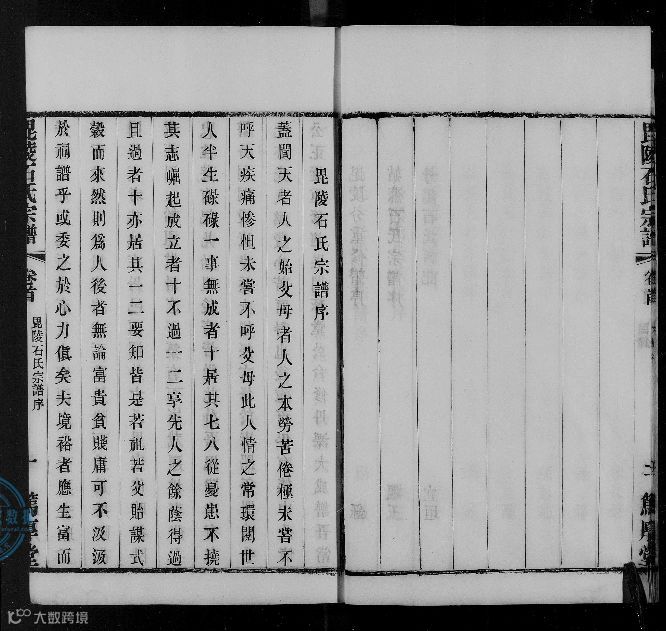 毘陵石氏宗譜序
蓋聞天者人之始父母者人之本勞苦倦極未嘗不
呼天疾痛慘怛未嘗不呼父母此人情之常環閱世
人半生碌碌一事無成者十居其七八從憂患不撓
其志崛起成立者十不過一二享先人之餘蔭得過
且過者十亦居其一二要知皆是若祖若父貽謀式
穀而來然則為人後者無論富貴貧賤庸可不汲汲
於祠譜乎或委之於心力俱矣夫境裕者應生富而
毘陵石氏宗譜
卷首
毘陵石氏宗譜序
一
篤厚堂
毘陵石氏宗譜
卷首
篤厚堂
大数跨境